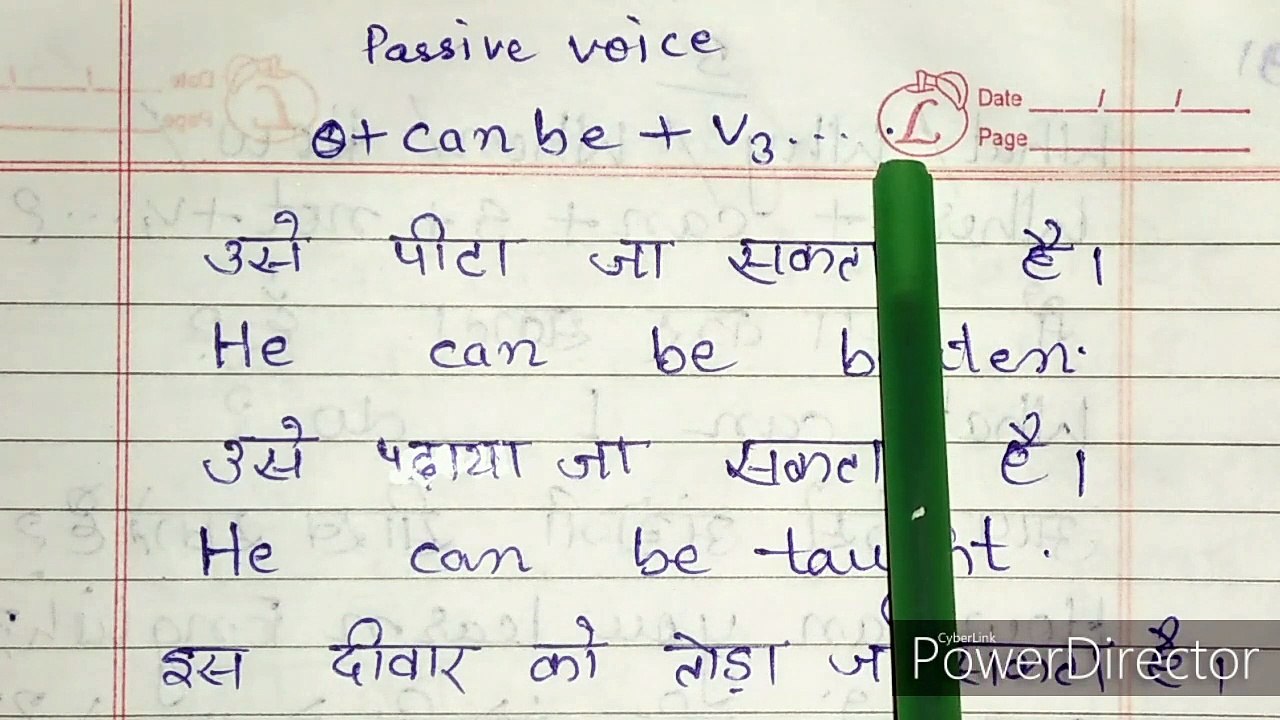 Passive voice
Date / /
Page
O + can be + V3....
उसे पीटा जा सकता है।
He can be beaten.
उसे पढ़ाया जा सकता है।
He can be taught.
इस दीवार को तोड़ा जा सकता है।
CyberLink
PowerDirector